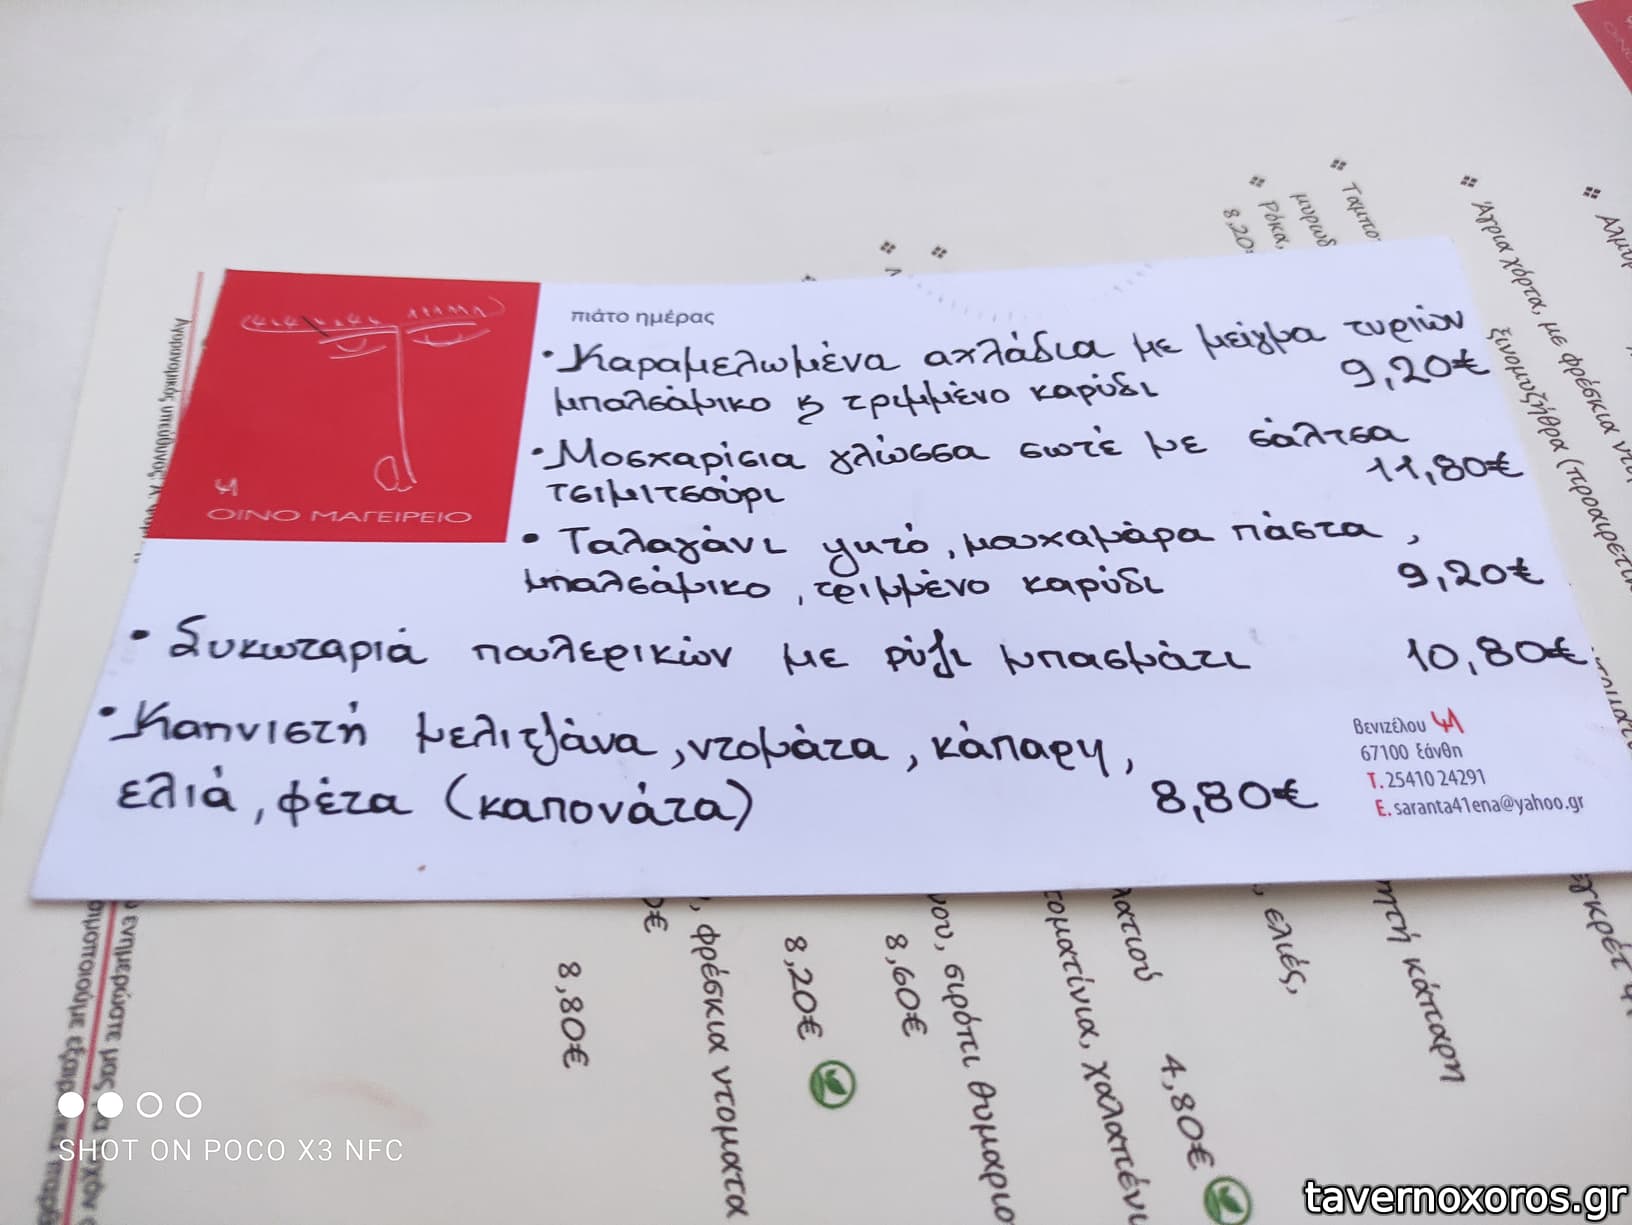 πιάτο ημέρας
• Καραμελωμένα αχλάδια με μείγμα τυριών
μπαλσάμικο & τριμμένο καρύδι 9,20€
• Μοσχαρίσια γλώσσα σωτέ με σάλτσα
τσιμιτσούρι 11,80€
• Ταλαγάνι ψητό, μουχαμάρα πάστα,
μπαλσάμικο, τριμμένο καρύδι 9,20€
• Συκωταριά πουλερικών με ρύζι μπασμάτι 10,80€
• Καπνιστή μελιτζάνα, ντομάτα, κάπαρη,
ελιά, φέτα (καπονάτα) 8,80€
41
ΟΙΝΟ ΜΑΓΕΙΡΕΙΟ
Βενιζέλου 41
67100 Ξάνθη
Τ. 25410 24291
E. saranta41ena@yahoo.gr
Αγορανομικός υπεύθυνος:
ενημερώστε μας
8,80€
, φρέσκια ντομάτα
8,20€
8,60€
, σιρόπι θυμαριο
τοματίνια, χαλαπένι
4,80€
, ελιές,
κάππαρη
❖ Ρόκα,
8,20
❖ Ταμπο
μυρωδ
❖ Άγρια χόρτα, με φρέσκια ντο
ξινομυζήθρα (προαιρετικ
❖ Αλμυρ
SHOT ON POCO X3 NFC
tavernoxoros.gr